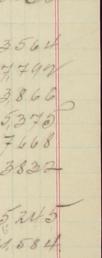 3564
7,792
3,866
5,375
7668
3832
5,245
1,584